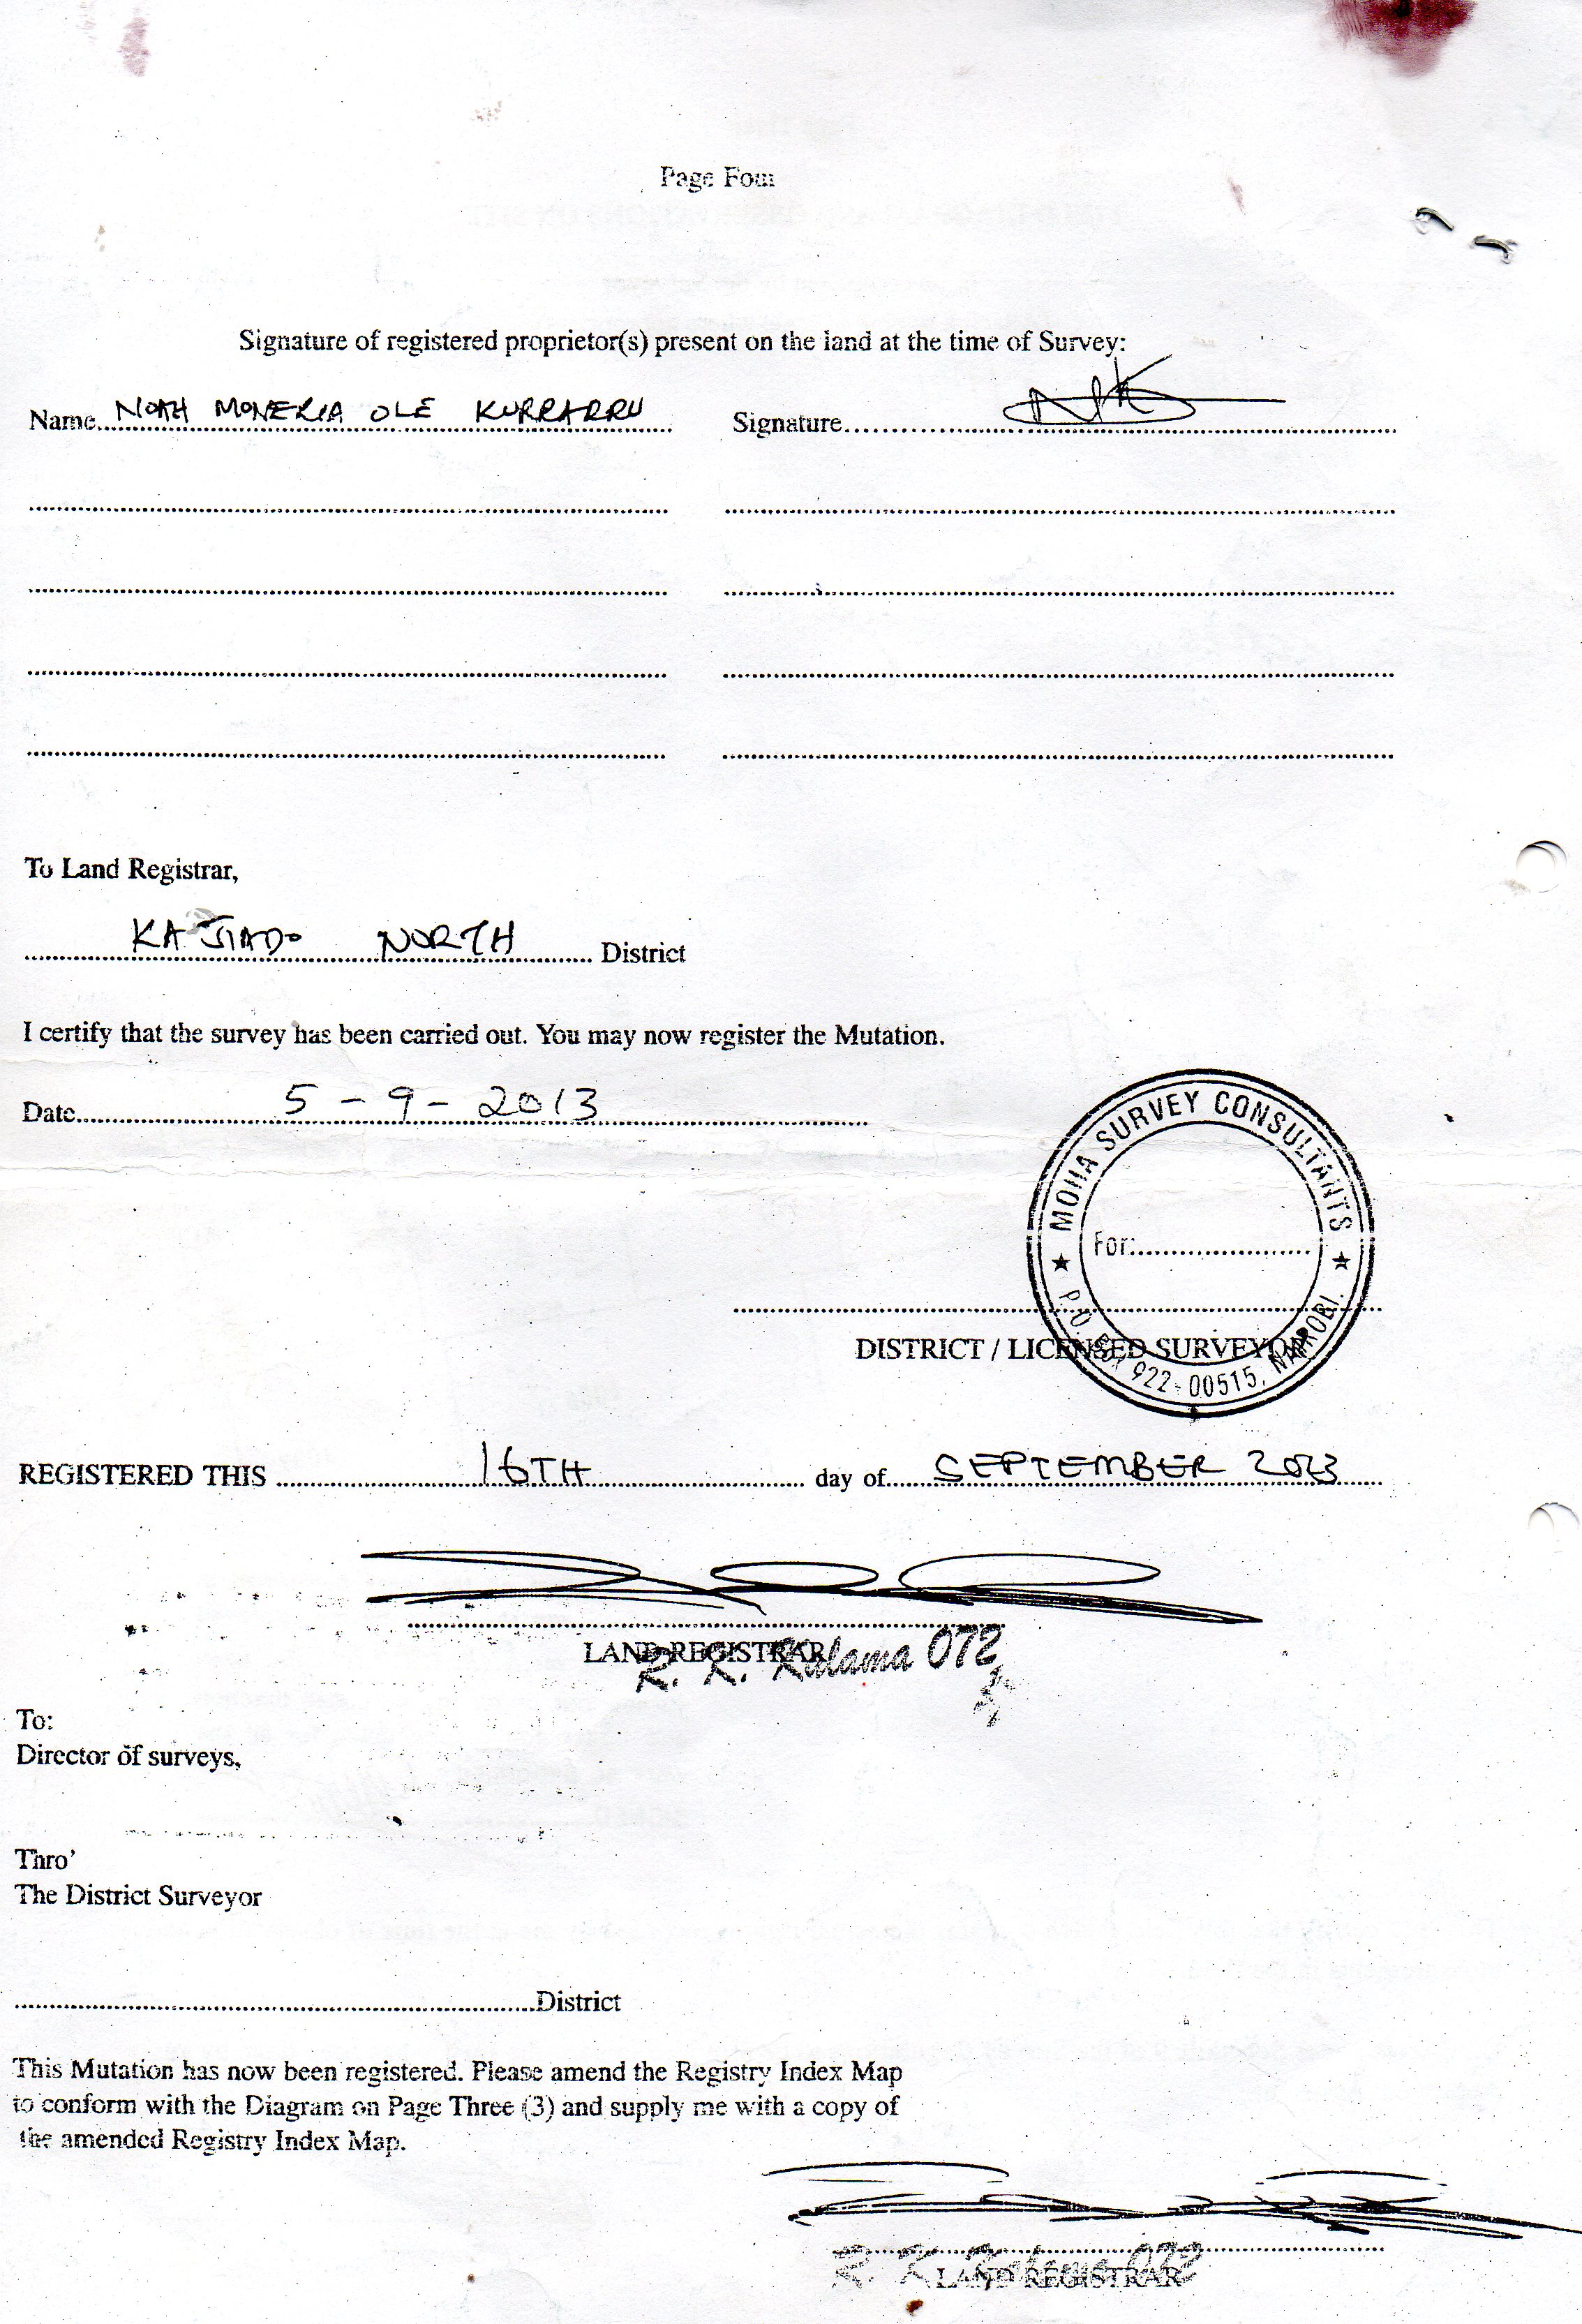 Page Four
Signature of registered proprietor(s) present on the land at the time of Survey:
Name NOAH MONERIA OLE KURRARRU Signature
To Land Registrar,
KAJIADO NORTH District
I certify that the survey has been carried out. You may now register the Mutation.
Date 5 - 9 - 2013
MOHA SURVEY CONSULTANTS
For:
P.O. Box 922-00515, NAIROBI.
DISTRICT / LICENSED SURVEYOR
REGISTERED THIS 16TH day of SEPTEMBER 2013
LAND REGISTRAR
R. K. Kalama 072
To:
Director of surveys,
Thro'
The District Surveyor
District
This Mutation has now been registered. Please amend the Registry Index Map
to conform with the Diagram on Page Three (3) and supply me with a copy of
the amended Registry Index Map.
R. K. Kalama 072
LAND REGISTRAR